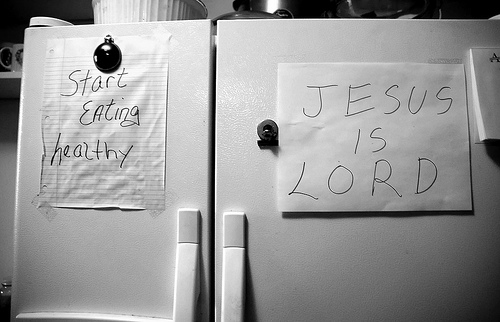 Start
EATing
healthy
JESUS
IS
LORD